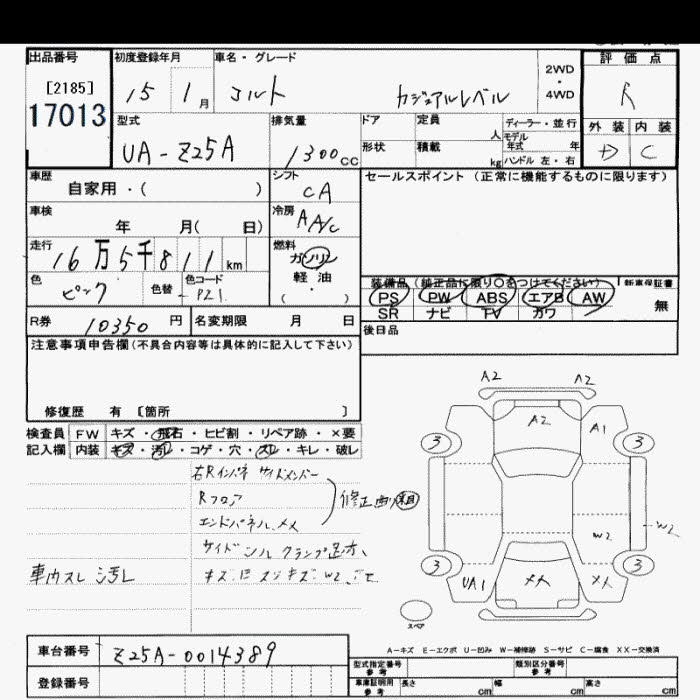 出品番号 初度登録年月 車名・グレード 2WD・4WD 評価点
[2185] 15 1月 コルト カジュアルレベル R
17013
型式 排気量 ドア 定員 人 ディーラー・並行 外装 内装
UA-Z25A 1300cc 形状 積載 kg モデル年式 年 D C
ハンドル 左・右
車歴 シフト セールスポイント(正常に機能するものに限ります)
自家用・( ) CA
車検 冷房
年 月( 日) AA/C
走行 燃料
16万5千811km ガソリン
色 色替 色コード 軽・油
ピンク P21 ( )
装備品(純正品に限り○をつけてください) 新車保証書
PS PW ABS エアB AW 無
SR ナビ TV カワ
R券 10350円 名変期限 月 日 後日品
注意事項申告欄(不具合内容等は具体的に記入して下さい)
修復歴 有 [箇所 ]
検査員 FW キズ・飛石・ヒビ割・リペア跡・×要
記入欄 内装 キズ・汚れ・コゲ・穴・スレ・キレ・破レ
右Rインパネ サイドメンバー
Rフロア
エンドパネルメメ
修正
サイドシル クランプ
車内スレ 汚レ
A2 A2
A2 A1
3 3
W2 W2
3 3
UA1 メメ メメ
スペア
A-キズ E-エクボ U-凹み W-補修跡 S-サビ C-腐食 XX-交換済
車台番号 Z25A-0014389
型式指定番号 参考 類別区分番号 参考
登録番号
車庫証明用 参考 長さ cm 幅 cm 高さ cm